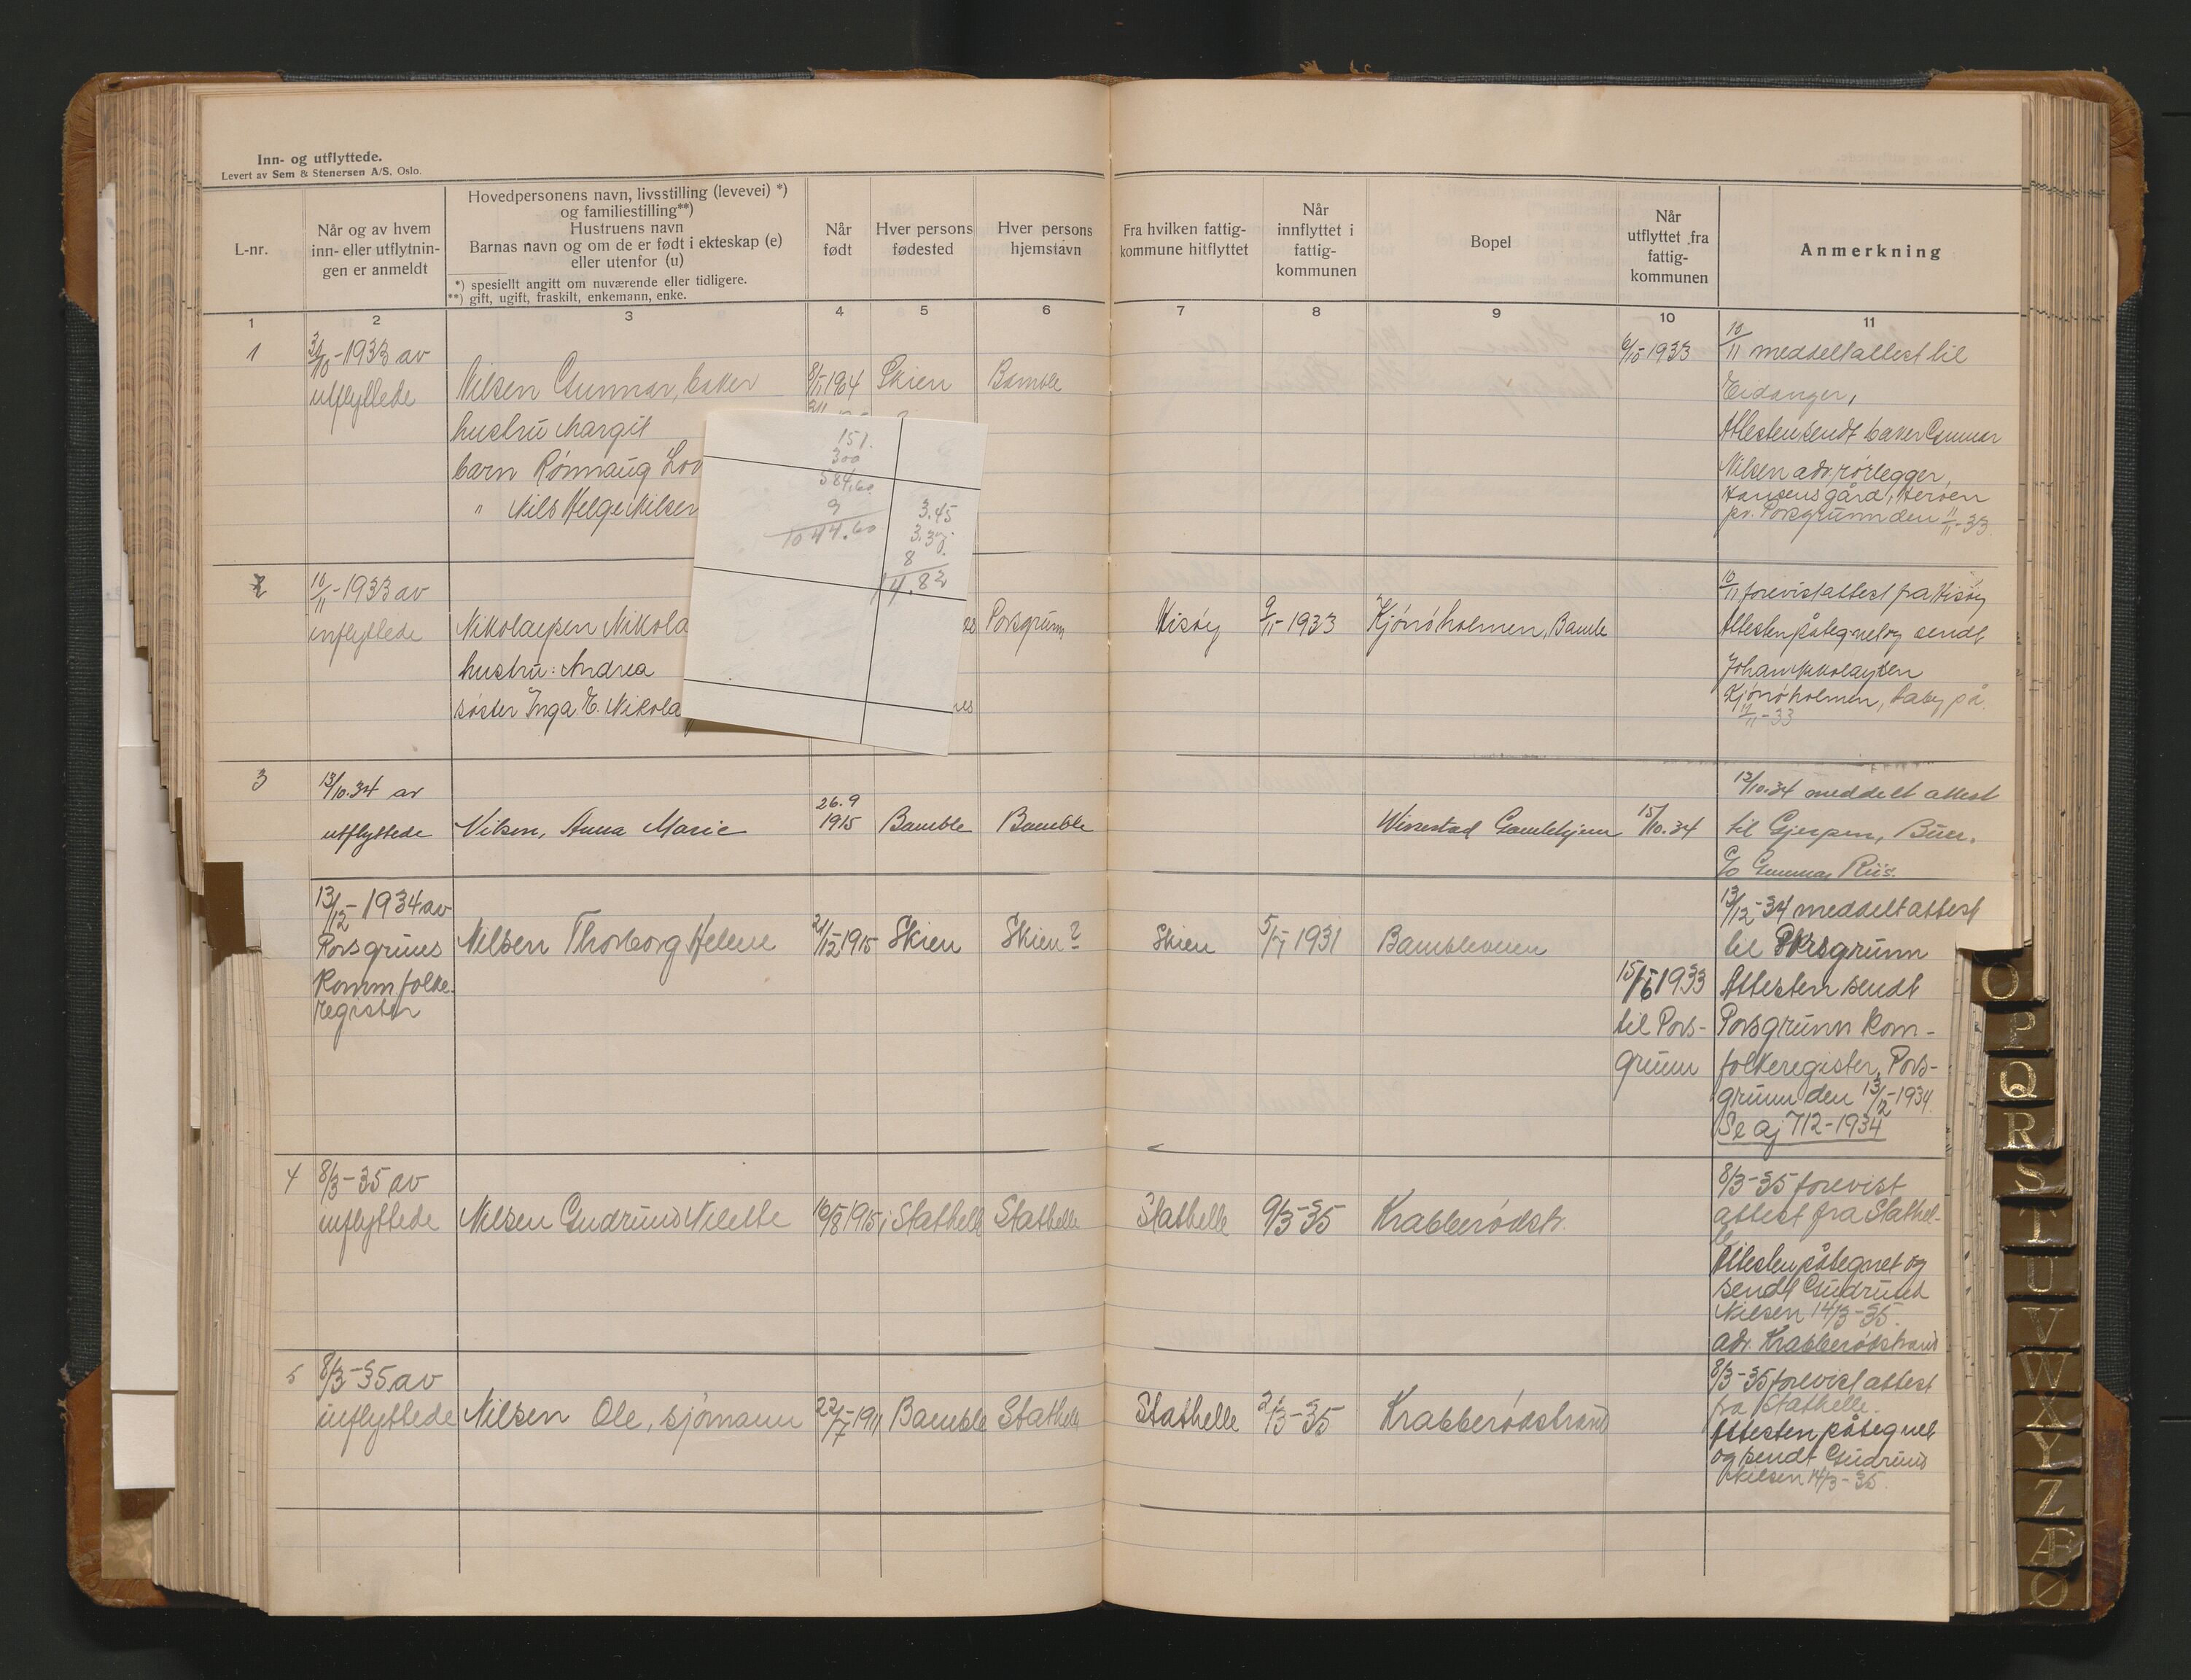 Inn- og utflyttede.
Levert av Sem & Stenersen A/S. Oslo.
L-nr.
Når og av hvem
inn- eller utflytnin-
gen er anmeldt
Hovedpersonens navn, livsstilling (levevei) *)
og familiestilling**)
Hustruens navn
Barnas navn og om de er født i ekteskap (e)
eller utenfor (u)
*) spesiellt angitt om nuværende eller tidligere.
**) gift, ugift, fraskilt, enkemann, enke.
Når
født
Hver persons
fødested
Hver persons
hjemstavn
Fra hvilken fattig-
kommune hitflyttet
Når
innflyttet i
fattig-
kommunen
Bopel
Når
utflyttet fra
fattig-
kommunen
Anmerkning
1 2 3 4 5 6 7 8 9 10 11
1
3/10-1933 av
utflyttede
Nilsen Gunnar, baker
hustru Margit
barn Rønnaug Lov
" Nils Helge Nilsen
8/11 1904
Skien
Bamble
6/10 1933
10/11 meddelt attest til
Eidanger,
Attesten sendt baker Gunnar
Nilsen adr. rørlegger,
Hansens gård, Herøen
pr. Porsgrunn den 11/11-33.
151.
300
584,60
9
1044.60
3.45
3.30
8
14.82
2
10/11-1933 av
innflyttede
Nikolaysen Nikola
hustru: Andrea
søster Inga E. Nikola
es
Porsgrunn
Hisøy
9/11-1933
Kjønøholmen, Bamble
10/11 forevist attest fra Hisøy
Attesten påtegnet og sendt
Johan Nikolaysen
Kjønøholmen,
11/11-33
3
13/10.34 av
utflyttede
Nilsen, Anna Marie
26.9
1915
Bamble
Bamble
Wissestad Gamlehjem
15/10.34
13/10.34 meddelt attest
til Gjerpen, Buer.
c/o Gunnar Riis.
13/12-1934 av
Porsgrunns
Komm. folke-
register
Nilsen Thorborg Helene
21/12 1915
Skien
Skien?
Skien
5/5 1931
Bambleveien
15/6 1933
til Pors-
grunn
13/12-34 meddelt attest
til Porsgrunn
Attesten sendt
Porsgrunn kom-
folkeregister, Pors-
grunn den 13/12-1934.
Se aj 712-1934
4
8/3-35 av
innflyttede
Nilsen Gudrund Nilette
16/8 1915
i Stathelle
Stathelle
Stathelle
9/3-35
Krabberødstr.
8/3-35 forevist
attest fra Stathel-
le
Attesten påtegnet og
sendt Gudrund
Nilsen 14/3-35.
adr. Krabberødstrand
5
8/3-35 av
innflyttede
Nilsen Ole, sjømann
22/7-1911
Bamble
Stathelle
Stathelle
2/3-35
Krabberødstrand
8/3-35 forevist attest
fra Stathelle.
Attesten påtegnet
og sendt Gudrund
Nilsen 14/3-35.
O
P
Q
R
S
T
U
V
W
X
Y
Z
Æ
Ø